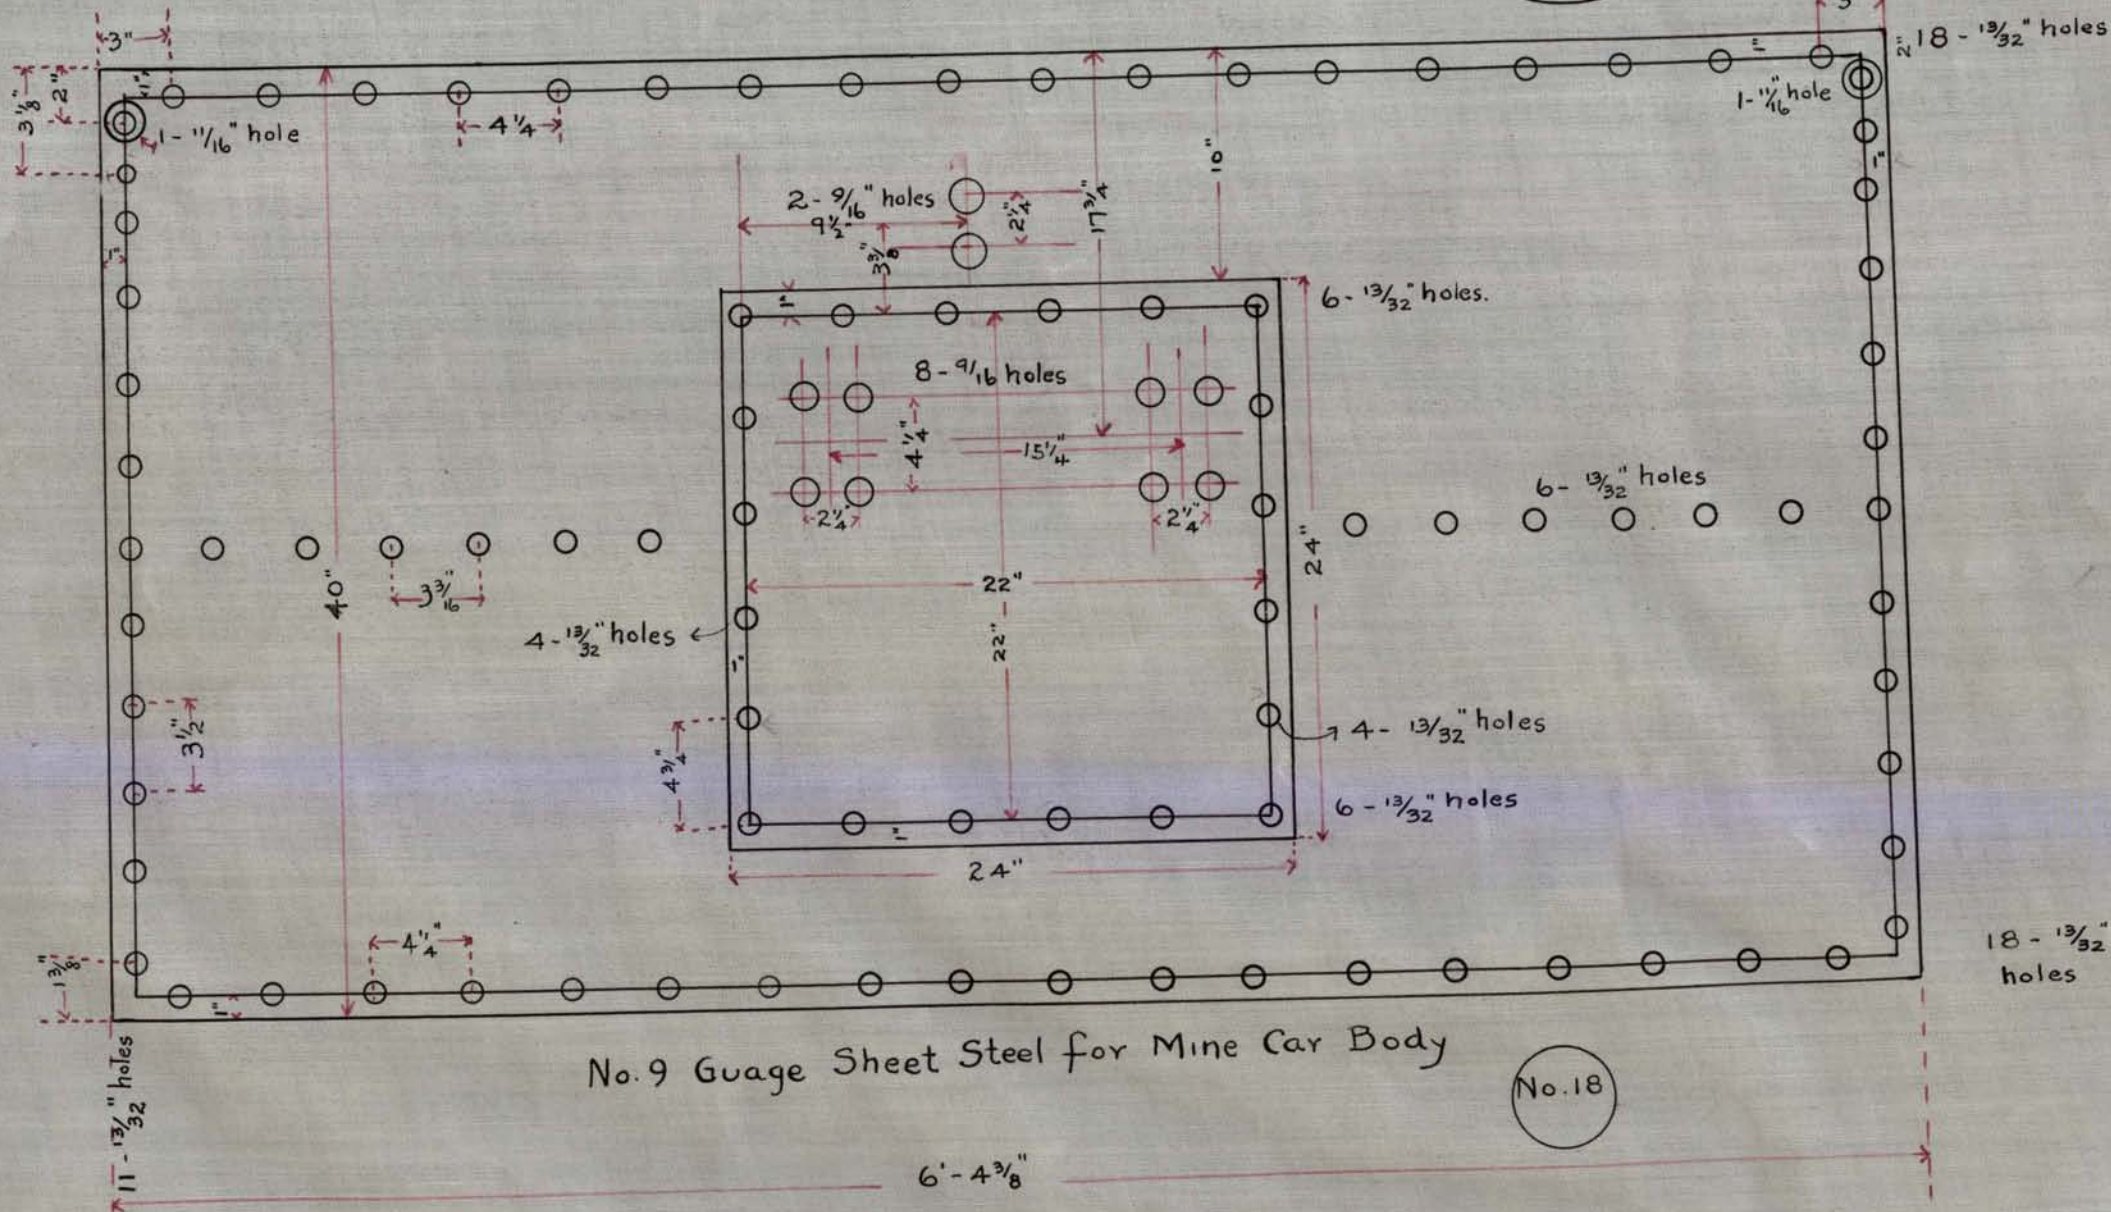 3"
3
3 1/8"
2"
1"
2"
18 - 13/32" holes
1"
1 - 11/16" hole
4 1/4
1 - 11/16" hole
1"
1"
10"
17 3/4"
2 - 9/16" holes
9 1/2"
2 1/4"
3 3/8"
1"
6 - 13/32" holes.
8 - 9/16 holes
4 1/4"
15 1/4"
2 1/4"
2 1/4"
6 - 13/32" holes
24"
40"
3 3/16
22"
22"
4 - 13/32" holes
1"
3 1/2"
4 3/4"
4 - 13/32" holes
6 - 13/32" holes
1"
24"
4 1/4"
1 3/8"
1"
18 - 13/32"
holes
11 - 13/32" holes
No. 9 Guage Sheet Steel for Mine Car Body
No. 18
6' - 4 3/8"